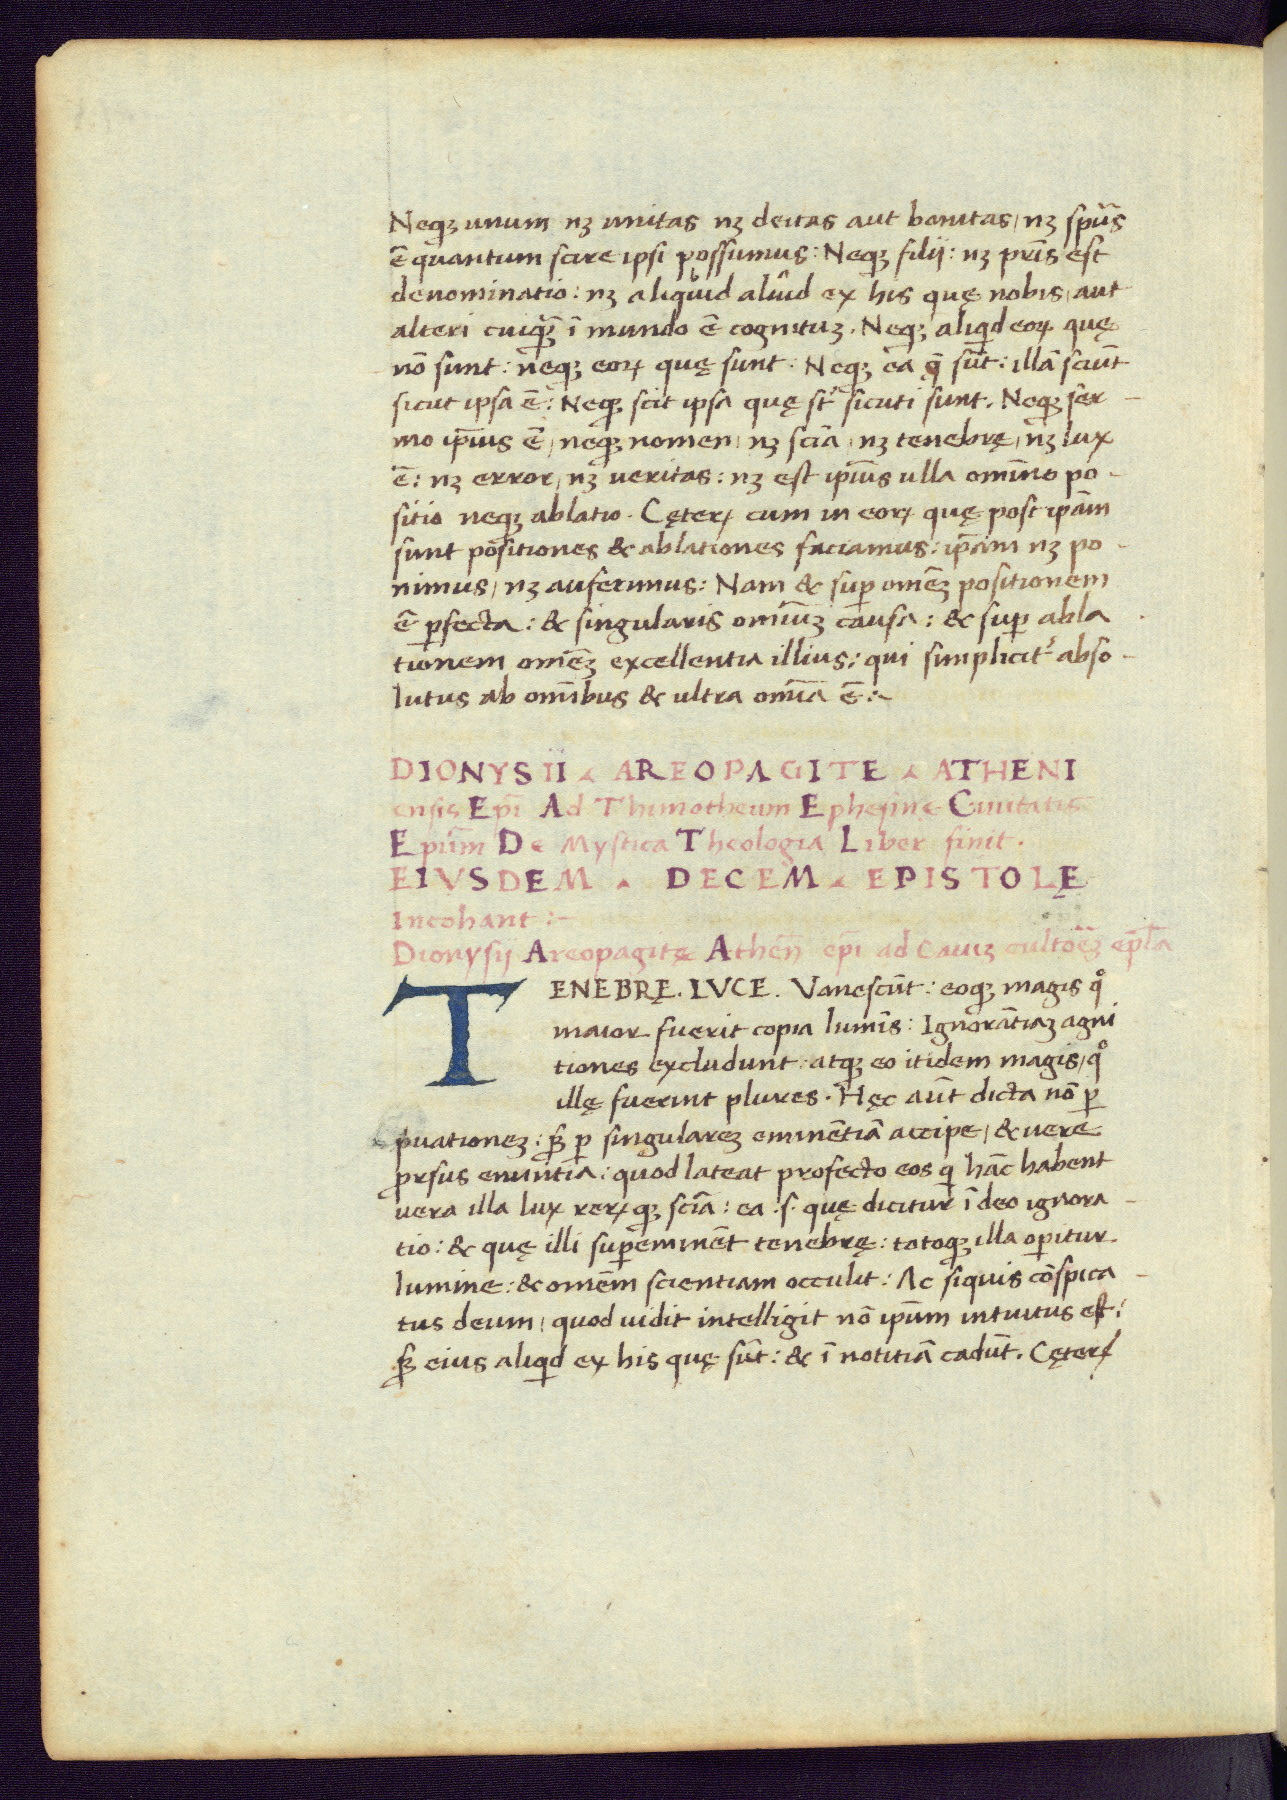 Neqꝫ unum nꝫ unitas nꝫ deitas aut bonitas, nꝫ spūs
ē quantum scire ipsi possumus: Neqꝫ filij: nꝫ pr̄is est
denominatio: nꝫ aliquid aliud ex his quę nobis, aut
alteri cuiqꝫ̄ ī mundo ē cognituꝫ. Neqꝫ aliqd eoꝝ quę
nō sunt: neqꝫ eoꝝ quę sunt. Neqꝫ ea q̄ sūt: illā sciūt
sicut ipsa ē: Neqꝫ scit ipsa quę st̄ sicuti sunt. Neqꝫ ser-
mo ip̄ius ē, neqꝫ nomen, nꝫ sciā, nꝫ tenebrę, nꝫ lux
ē: nꝫ error, nꝫ ueritas: nꝫ est ip̄ius ulla omīno po-
sitio neqꝫ ablatio. Cęteꝝ cum in eoꝝ quę post ip̄am
sunt positiones & ablationes faciamus: ip̄am nꝫ po-
nimus, nꝫ auferimus: Nam & suꝑ omēꝫ positionem
ē ꝑfecta: & singularis omīuꝫ causa: & suꝑ abla
tionem omēꝫ excellentia illius: qui simplicit̉ abso-
lutus ab omībus & ultra omīa ē:~
DIONYSII . AREOPAGITE . ATHENI
ensis Ep̄i Ad Thimotheum Ephesinę Ciuitatis
Epūm De Mystica Theologia Liber finit.
EIVSDEM . DECEM . EPISTOLĘ
Incohant:~
Dionysij Areopagitę Athen̄ ep̄i ad Caiuꝫ cultoēꝫ epl̄a
TENEBRĘ. LVCE. Vanescūt: eoqꝫ magis qͦ
maior fuerit copia lumīs: Ignorātiaꝫ agni
tiones excludunt: atqꝫ eo itidem magis, qͦ
illę fuerint plures. Hęc aūt dicta nō ꝑ
puationeꝫ: sꝫ ꝑ singulareꝫ eminētiā accipe, & uere
ꝓrsus enuntia: quod lateat profecto eos qi hāc habent
uera illa lux reꝝqꝫ sciā: ea .s. quę dicitur ī deo ignora-
tio: & quę illi suꝑeminēt tenebrę: totoqꝫ illa oꝑitur
lumine: & omēm scientiam occulit: Ac siquis cōspica-
tus deum, quod uidit intelligit nō ip̄um intuitus est:
sꝫ eius aliqd ex his quę sūt: & ī notitiā cadūt. Cęteꝝ